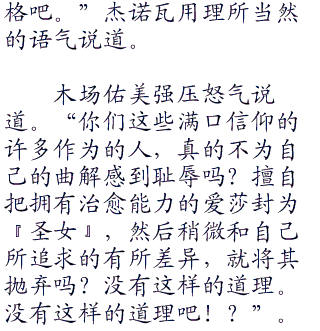 格吧。”杰诺瓦用理所当然
的语气说道。
木场佑美强压怒气说
道。“你们这些满口信仰的
许多作为的人，真的不为自
己的曲解感到耻辱吗？擅自
把拥有治愈能力的爱莎封为
『圣女』，然后稍微和自己
所追求的有所差异，就将其
抛弃吗？没有这样的道理。
没有这样的道理吧！？”。